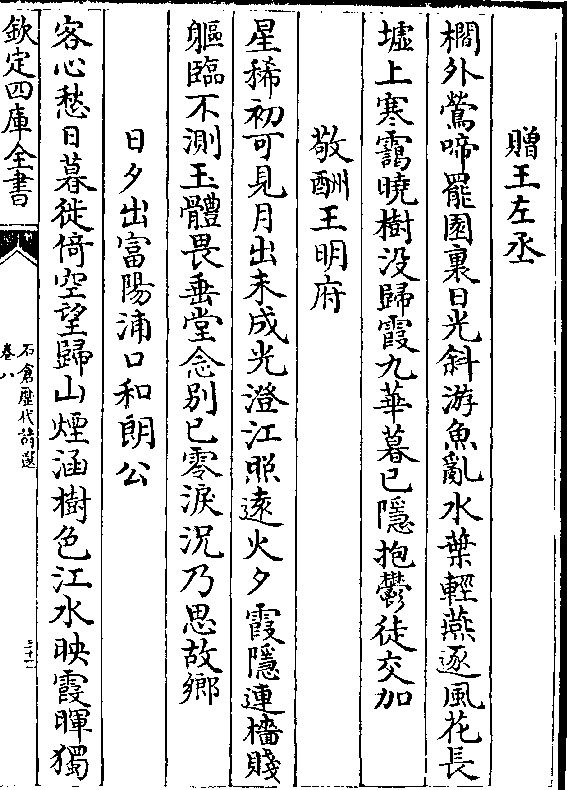 贈王左丞
櫩外鶯啼罷園裏日光斜游魚亂水葉輕燕逐風花長
墟上寒靄曉樹没歸霞九華暮已隱抱鬱徒交加
敬酬王明府
星稀初可見月出未成光澄江照遠火夕霞隱連檣賤
軀臨不測玉體畏垂堂念别已零淚況乃思故鄉
日夕出富陽浦口和朗公
客心愁日暮徙倚空望歸山煙涵樹色江水映霞暉獨
欽定四庫全書
石倉歷代詩選
卷八
二十二